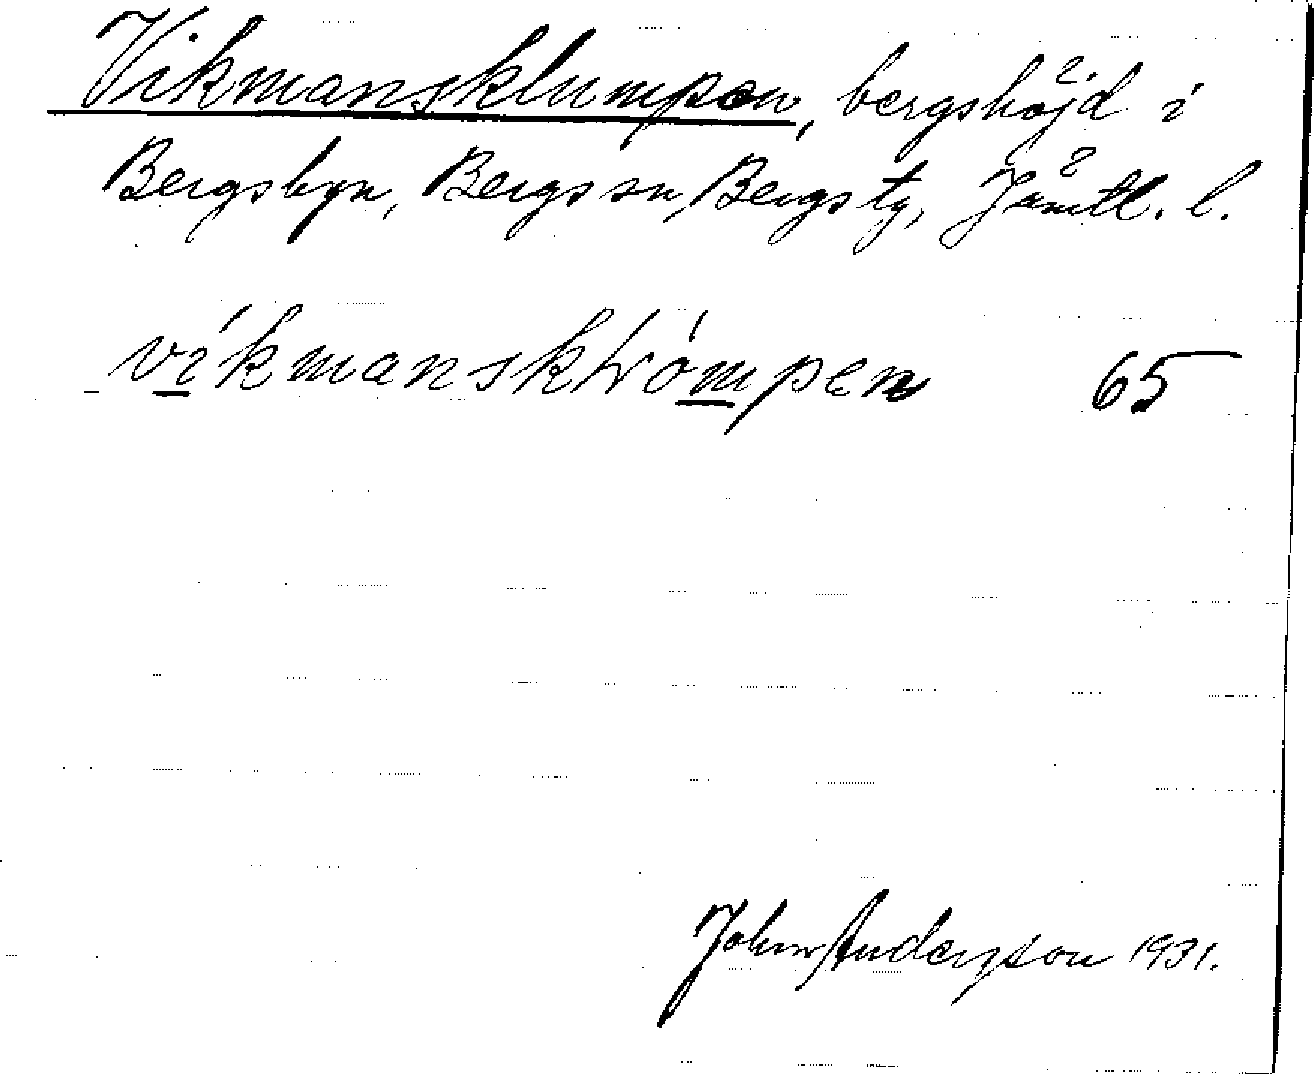 Vikmansklumpen, bergshöjd i
Bergsbyn, Bergs sn, Bergs tg, Jämtl. l.
víkmansklómpen 65
John Anderson 1931.